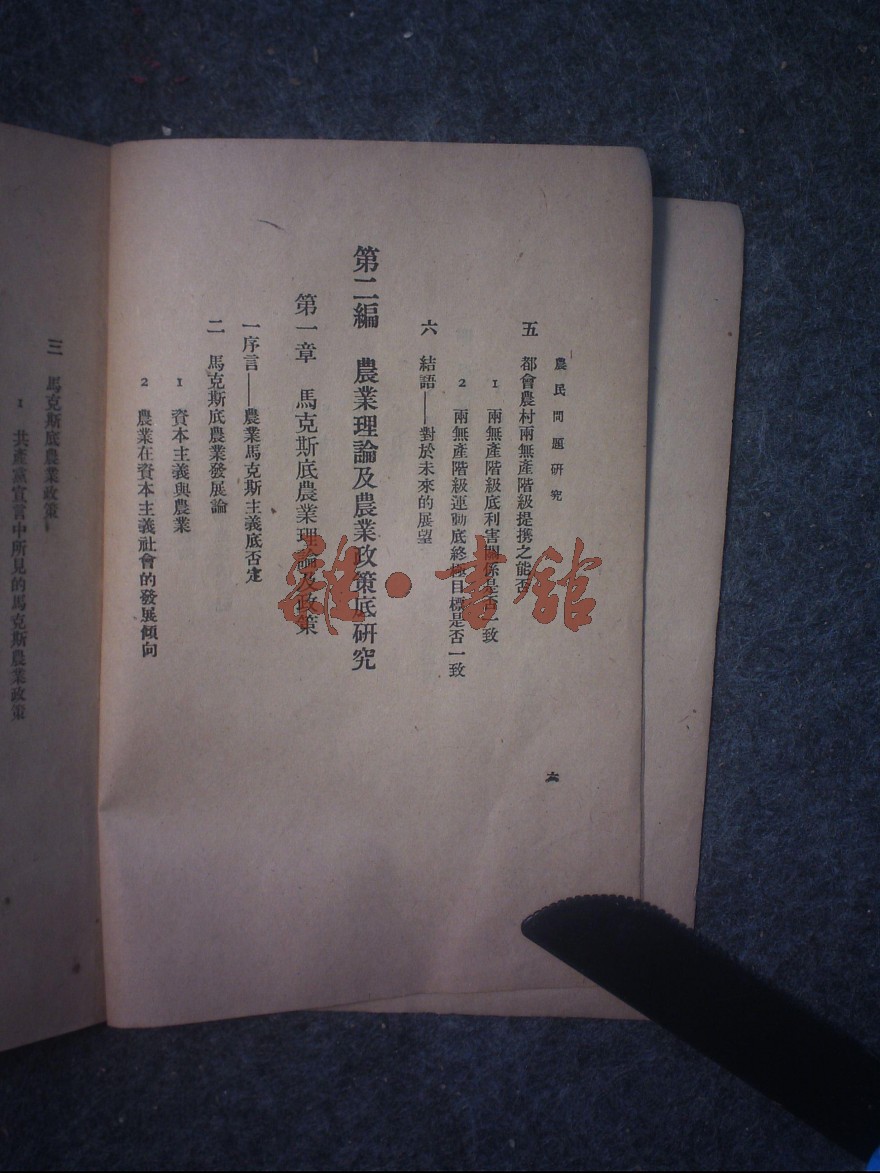 農民問題研究
五 都會農村兩無產階級提携之能否
1 兩無產階級底利害關係是否一致
2 兩無產階級運動底終極目標是否一致
六 結語——對於未來的展望
第二編 農業理論及農業政策底研究
第一章 馬克斯底農業理論及政策
一 序言——農業馬克斯主義底否定
二 馬克斯底農業發展論
1 資本主義與農業
2 農業在資本主義社會的發展傾向
六
三 馬克斯底農業政策
1 共產黨宣言中所見的馬克斯農業政策
雜·書館